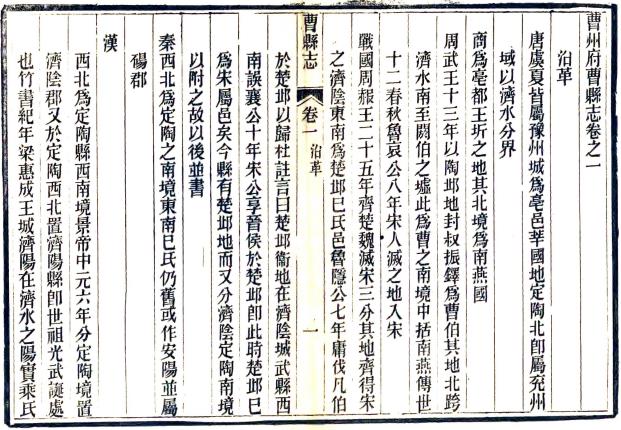 曹州府曹縣志卷之一
沿革
唐虞夏皆屬豫州城爲亳邑莘國地定陶北卽屬兖州
域以濟水分界
商爲亳都王圻之地其北境爲南燕國
周武王十三年以陶邶地封叔振鐸爲曹伯其地北跨
濟水南至閼伯之墟此爲曹之南境中括南燕傳世
十二春秋魯哀公八年宋人滅之地入宋
戰國周赧王二十五年齊楚魏滅宋三分其地齊得宋
之濟陰東南爲楚邱巳氏邑魯隱公七年庸伐凡伯
曹縣志
卷一
沿革
一
於楚邱以歸杜註言曰楚邱衞地在濟陰城武縣西
南誤襄公十年宋公享晉侯於楚邱卽此時楚邱巳
爲宋屬邑矣今縣有楚邱地而又分濟陰定陶南境
以附之故以後並書
秦西北爲定陶之南境東南巳氏仍舊或作安陽並屬
碭郡
漢
西北爲定陶縣西南境景帝中元六年分定陶境置
濟陰郡又於定陶西北置濟陽縣卽世祖光武誕處
也竹書紀年梁惠成王城濟陽在濟水之陽實乘氏